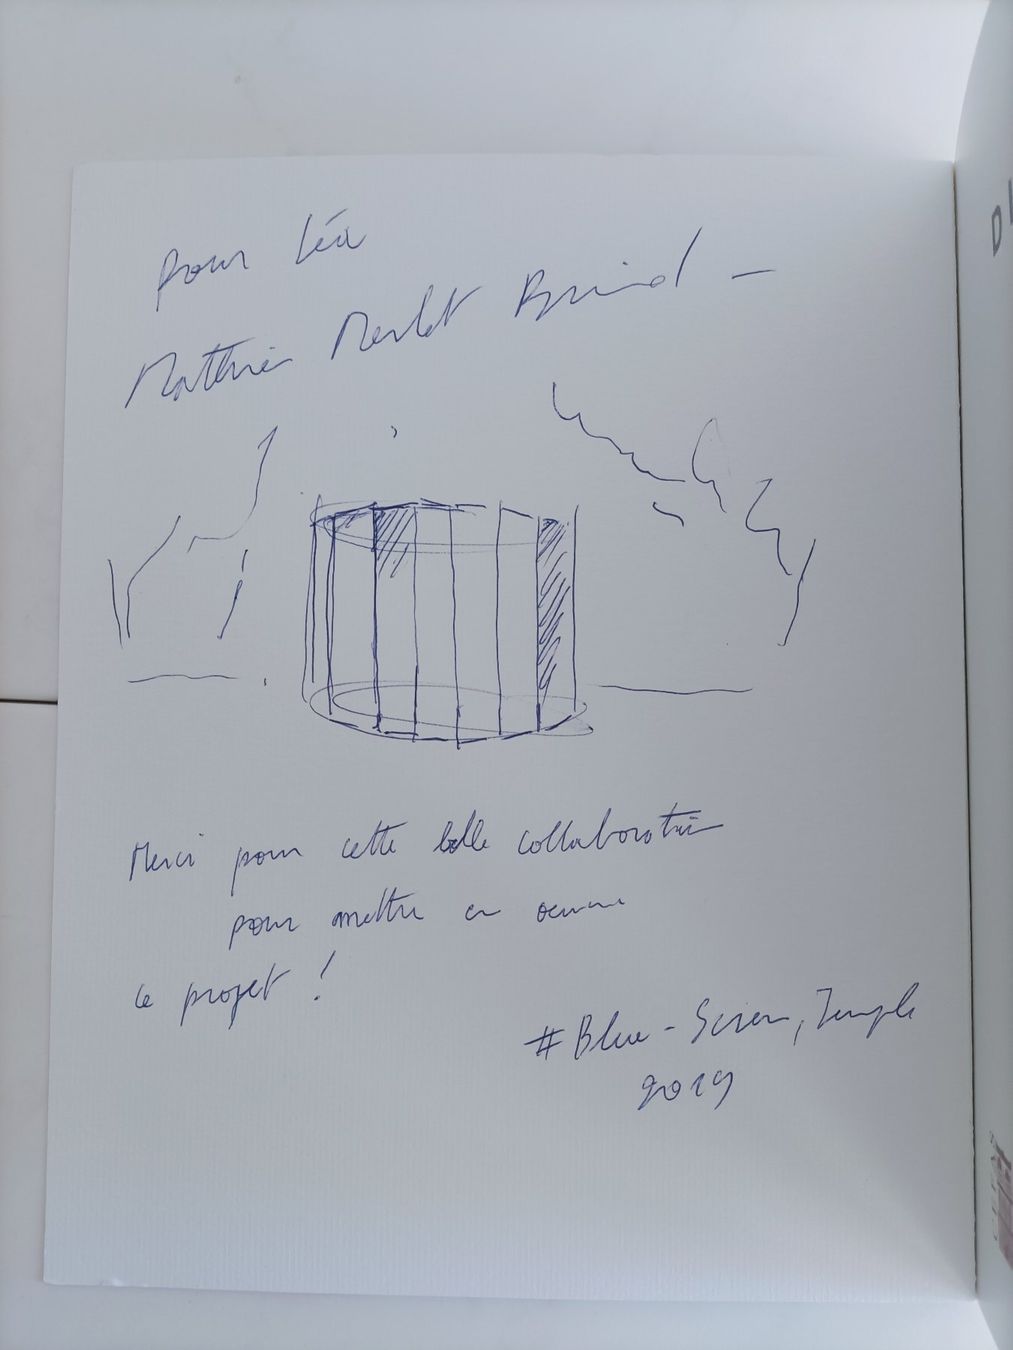 Pour Léa
Mathieu Merlet Briand -
Merci pour cette belle collaboration
pour mettre en oeuvre
ce projet !
#Blue-Screen, Temple
2019